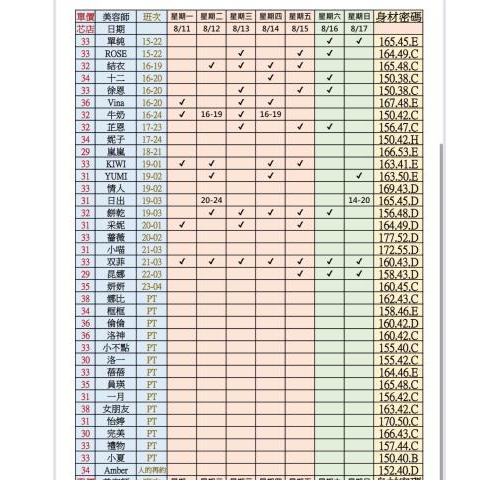 單價 美容師 班次 星期一 星期二 星期三 星期四 星期五 星期六 星期日 身材密碼
芯店 日期 8/11 8/12 8/13 8/14 8/15 8/16 8/17
33 單純 15-22 ✓ ✓ 165.45.E
33 ROSE 15-22 ✓ ✓ ✓ 164.49.C
32 結衣 16-19 ✓ ✓ ✓ ✓ 165.48.C
34 十二 16-20 ✓ ✓ 150.38.C
33 徐恩 16-20 ✓ ✓ ✓ 150.38.C
36 Vina 16-20 ✓ ✓ ✓ 167.48.E
32 牛奶 16-24 ✓ 16-19 ✓ 16-19 150.42.C
32 芷恩 17-23 ✓ ✓ ✓ 156.47.C
34 妮子 17-24 150.42.H
29 嵐嵐 18-21 166.53.E
33 KIWI 19-01 ✓ ✓ ✓ ✓ 163.41.E
31 YUMI 19-02 ✓ ✓ ✓ 163.50.E
33 情人 19-02 169.43.D
31 日出 19-03 20-24 14-20 165.45.D
32 餅乾 19-03 ✓ ✓ ✓ ✓ ✓ 156.48.D
31 采妮 20-01 ✓ ✓ ✓ 164.49.D
33 薔薇 20-02 177.52.D
31 小喵 21-03 172.55.D
33 双菲 21-03 ✓ ✓ ✓ ✓ ✓ ✓ ✓ 160.43.D
29 昆娜 22-03 ✓ ✓ ✓ 158.43.D
35 妍妍 23-04 160.45.C
38 娜比 PT 162.43.C
34 框框 PT 158.46.E
36 倫倫 PT 160.42.D
36 洛神 PT 160.42.C
33 小不點 PT 155.40.C
30 洛一 PT 155.42.C
33 蓓蓓 PT 164.46.E
35 員瑛 PT 165.48.C
31 一月 PT 156.42.C
38 女朋友 PT 163.42.C
31 怡婷 PT 170.50.C
30 完美 PT 166.43.C
33 禮物 PT 157.44.C
33 小夏 PT 150.40.B
34 Amber 人的再約 152.40.D